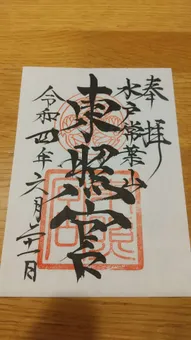 奉拝
水戸常葉山
東照宮
令和四年六月二十一日